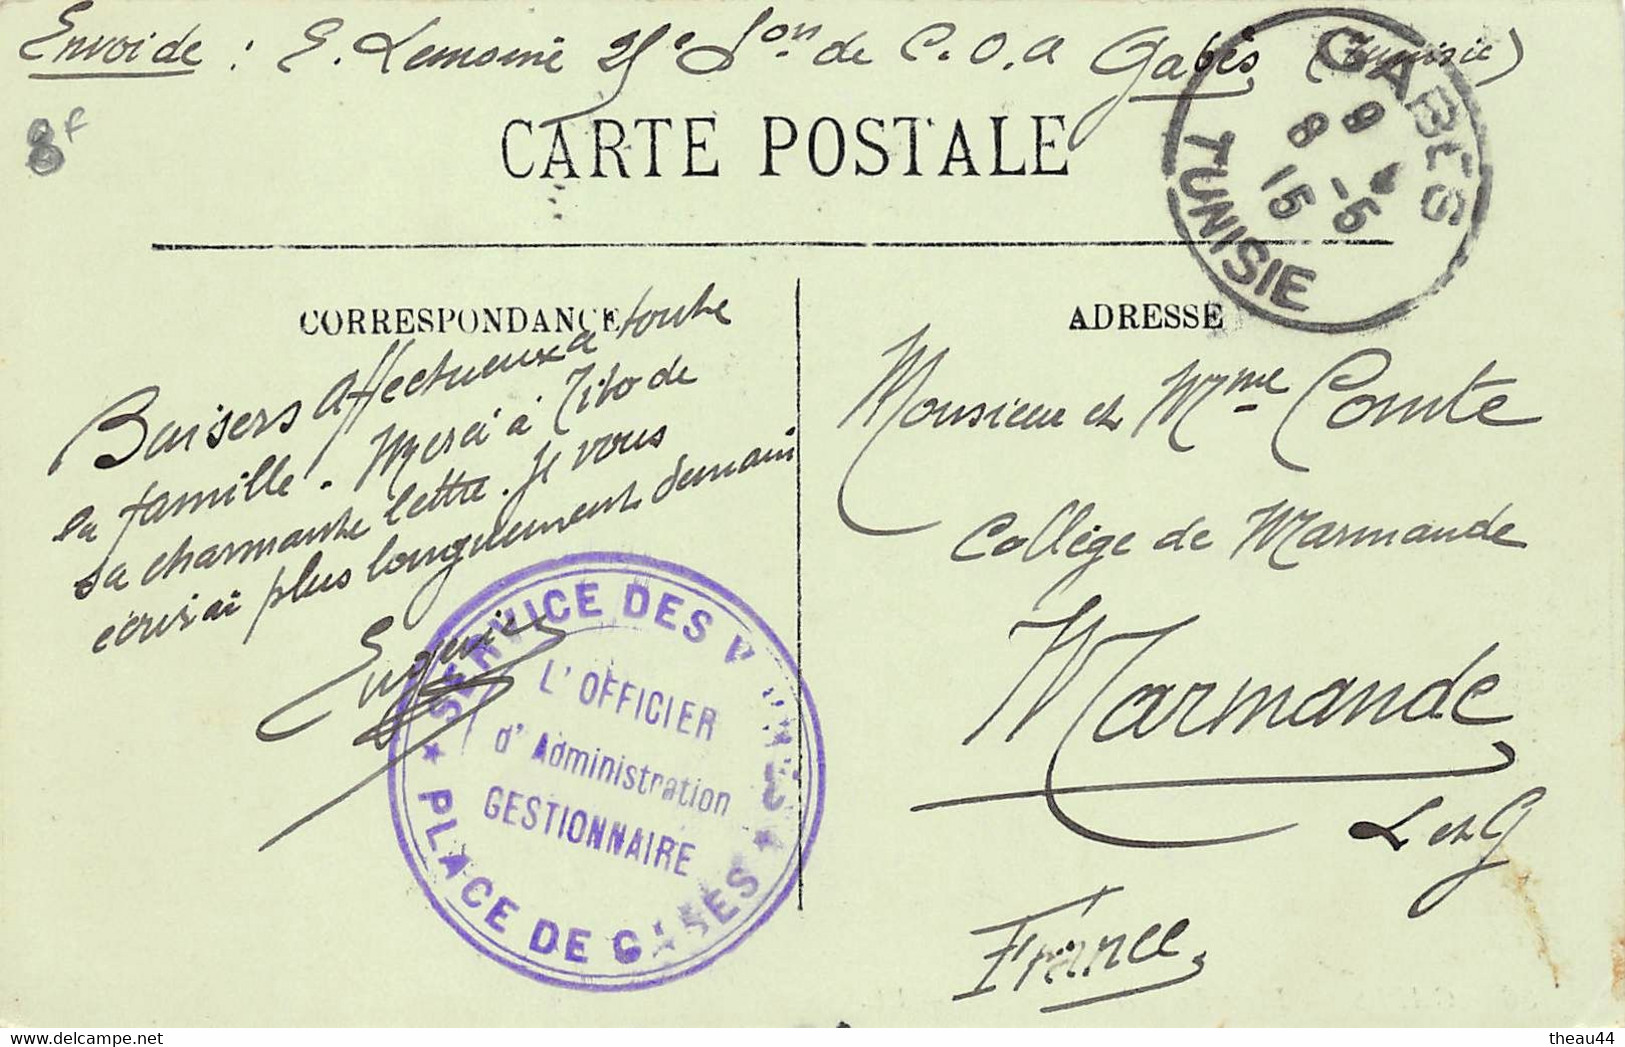 Envoi de : E. Lemoine 25e Son de C.O.A Gabès (Tunisie)
8f
CARTE POSTALE
GABÈS
TUNISIE
9
8 -5
15
CORRESPONDANCE
Baisers affectueux à toute
la famille. Merci à Tito de
sa charmante lettre. Je vous
écrirai plus longuement demain
Eugenie
SERVICE DES V
L'OFFICIER
d'Administration
GESTIONNAIRE
PLACE DE GABÈS
ADRESSE
Monsieur et Mme Comte
Collège de Marmande
Marmande
L et G
France
delcampe.net
theau44